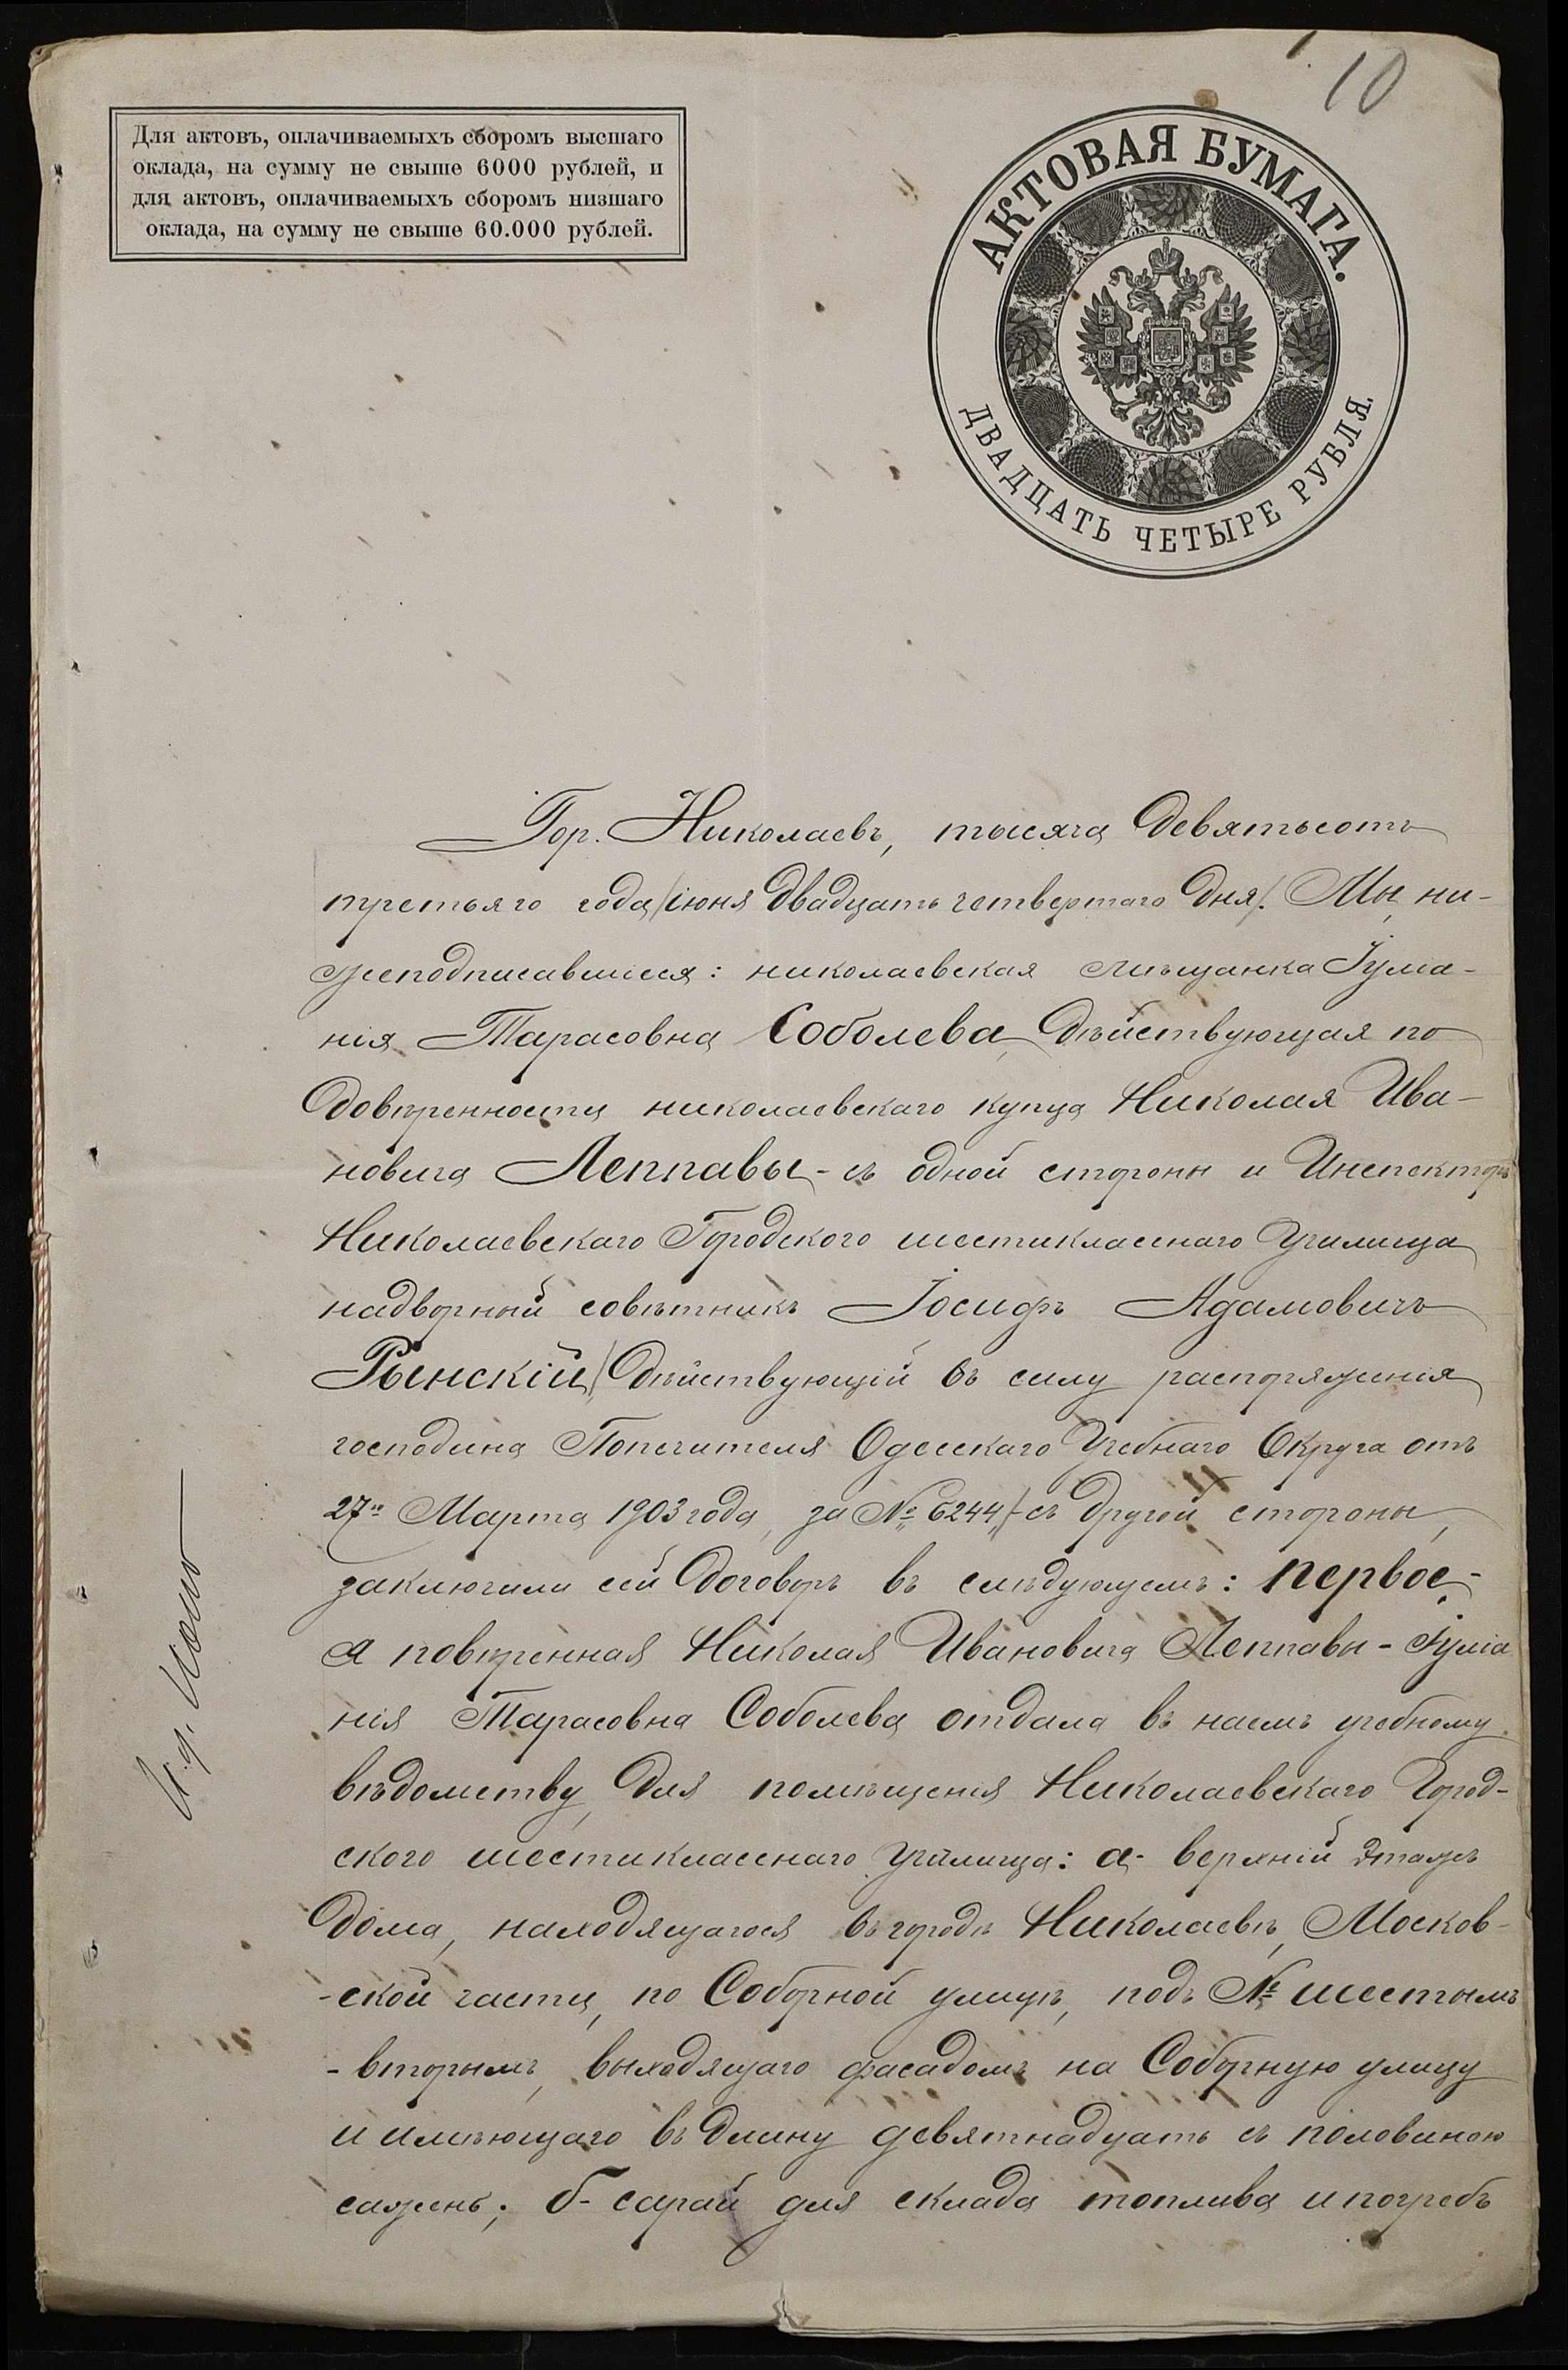 10
Для актовъ, оплачиваемыхъ сборомъ высшаго
оклада, на сумму не свыше 6000 рублей, и
для актовъ, оплачиваемыхъ сборомъ низшаго
оклада, на сумму не свыше 60.000 рублей.
АКТОВАЯ БУМАГА.
ДВАДЦАТЬ ЧЕТЫРЕ РУБЛЯ.
Гор. Николаевъ, тысяча девятьсотъ
третьяго года /іюня двадцать четвертаго дня/. Мы, ни-
жеподписавшіеся: николаевская мѣщанка Іуліа-
нія Тарасовна Соболева, дѣйствующая по
довѣренности николаевскаго купца Николая Ива-
новича Леппавы - съ одной стороны и Инспекторъ
Николаевскаго Городского шестикласснаго Училища
надворный совѣтникъ Іосифъ Адамовичъ
Рынскій, /дѣйствующій въ силу распоряженія
господина Попечителя Одесскаго Учебнаго Округа отъ
27го Марта 1903 года, за № 6244/ - съ другой стороны,
заключили сей договоръ въ слѣдующемъ: первое -
я повѣренная Николая Ивановича Леппавы - Іуліа
нія Тарасовна Соболева отдала въ наемъ учебному
вѣдомству, для помѣщенія Николаевскаго Город-
ского шестикласснаго училища: а - верхній этажъ
дома, находящагося въ городѣ Николаевѣ, Москов-
-ской части, по Соборной улицѣ, подъ № шестымъ
- вторымъ, выходящаго фасадомъ на Соборную улицу
и имѣющаго въ длину девятнадцать съ половиною
сажень; б - сарай для склада топлива и погребъ
И. д.